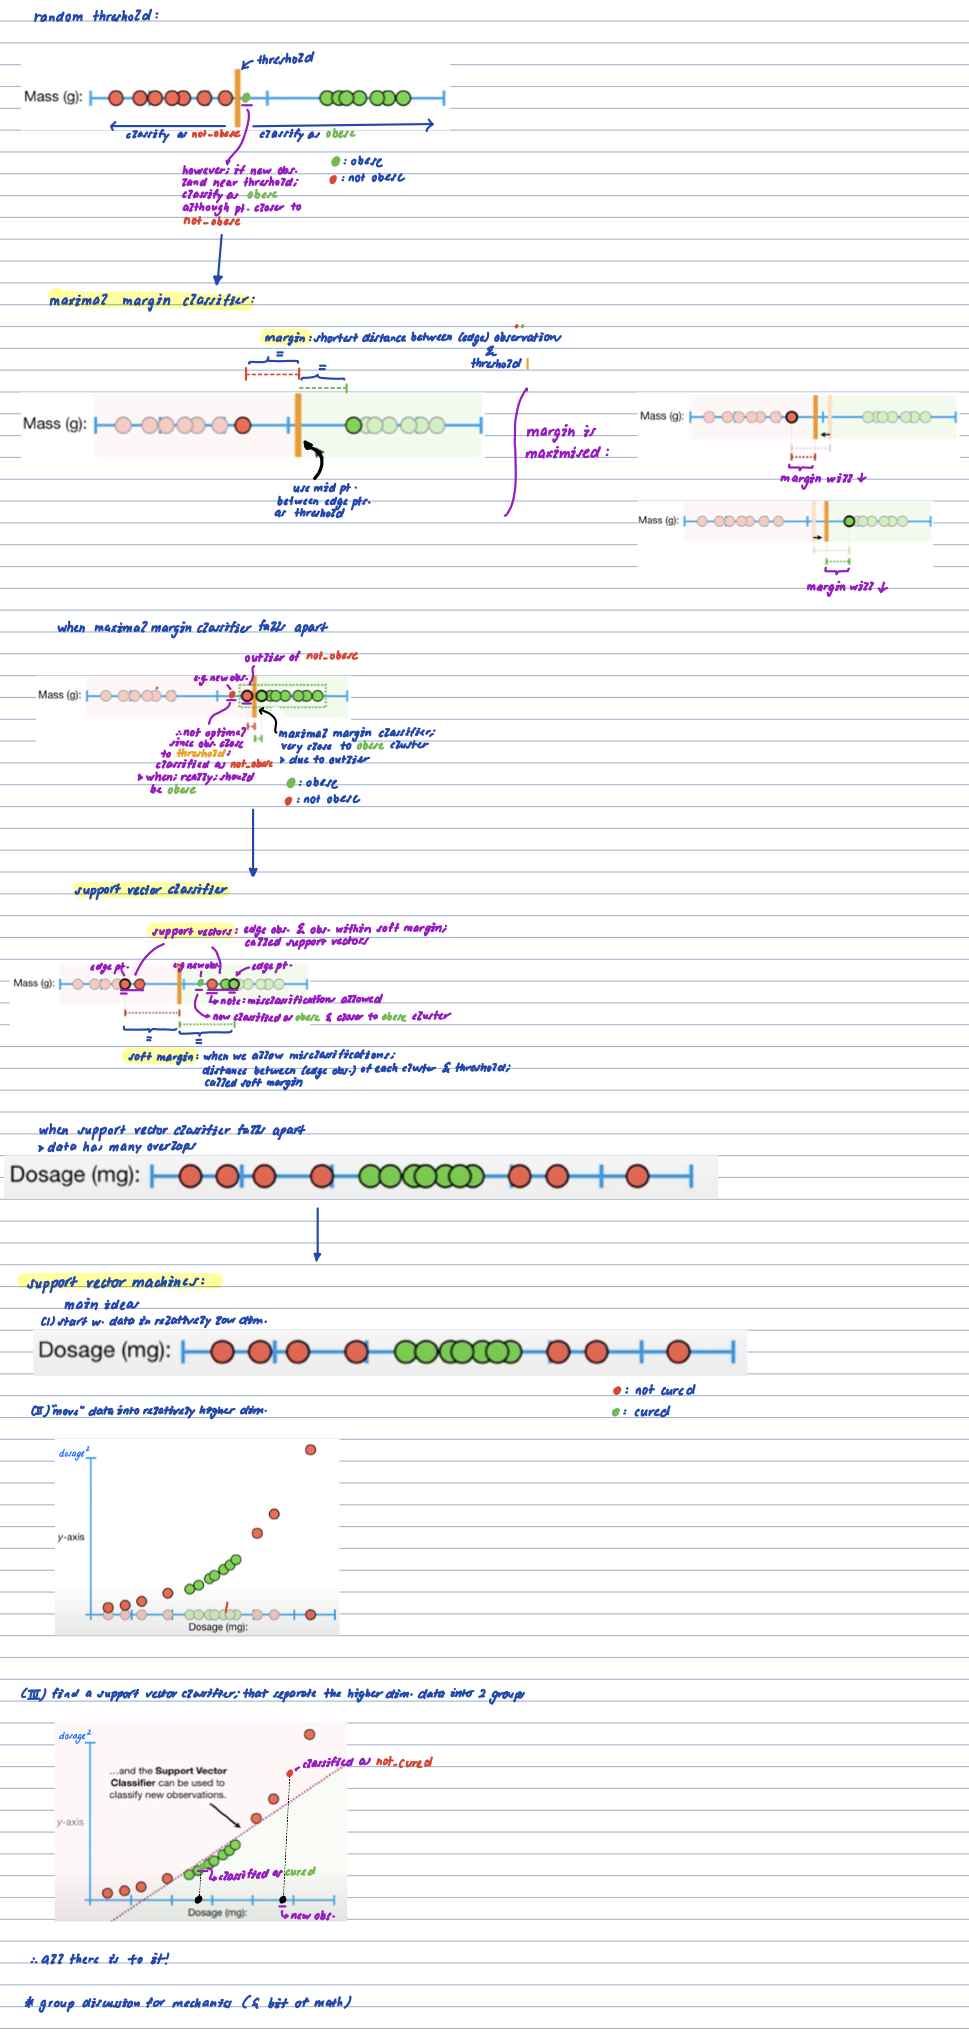 random threshold:
threshold
Mass (g):
classify as not_obese classify as obese
however; if new obs.
land near threshold;
classify as obese
although pt. closer to
not_obese
: obese
: not obese
maximal margin classifier:
margin: shortest distance between (edge) observation
&
threshold
=
=
Mass (g):
use mid pt.
between edge pts.
as threshold
margin is
maximised:
Mass (g):
margin will ↓
Mass (g):
margin will ↓
when maximal margin classifier falls apart
outlier of not_obese
e.g. new obs.
Mass (g):
∴ not optimal
since obs. close
to threshold;
classified as not_obese
▹ when; really; should
be obese
maximal margin classifier;
very close to obese cluster
▹ due to outlier
: obese
: not obese
support vector classifier
support vectors: edge obs. & obs. within soft margin;
called support vectors
edge pt. e.g. new obs. edge pt.
Mass (g):
note: misclassification allowed
now classified as obese & closer to obese cluster
=
=
soft margin: when we allow misclassifications;
distance between (edge obs.) of each cluster & threshold;
called soft margin
when support vector classifier falls apart
▹ data has many overlaps
Dosage (mg):
support vector machines:
main ideas
(I) start w. data in relatively low dim.
Dosage (mg):
: not cured
: cured
(II) "move" data into relatively higher dim.
dosage²
y-axis
Dosage (mg):
(III) find a support vector classifier; that separate the higher dim. data into 2 groups
dosage²
classified as not_cured
...and the Support Vector
Classifier can be used to
classify new observations.
y-axis
classified as cured
Dosage (mg):
new obs.
∴ all there is to it!
* group discussion for mechanics (& bit of math)